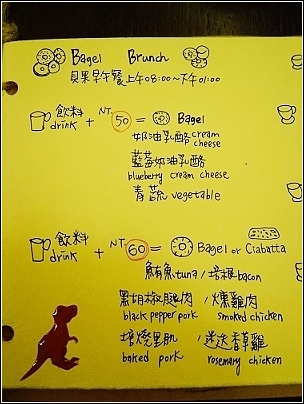 Bagel Brunch
貝果早午餐 上午08:00~下午01:00
飲料 drink + NT 50 = Bagel
奶油乳酪 cream cheese
藍莓奶油乳酪
blueberry cream cheese
青蔬 vegetable
飲料 drink + NT 60 = Bagel or Ciabatta
鮪魚tuna / 培根bacon
黑胡椒腿肉 / 燻雞肉
black pepper pork smoked chicken
培燒里肌 / 迷迭香草雞
baked pork rosemary chicken